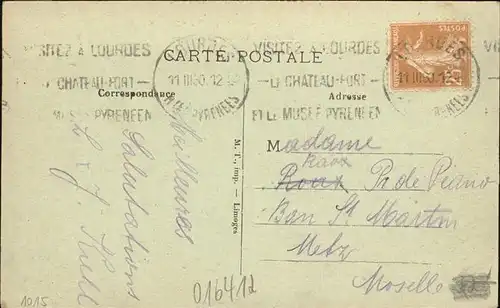 VISITEZ À LOURDES
LE CHATEAU-FORT
MUSÉE PYRENEEN
CARTE POSTALE
LOURDES
11 III 30. 12
HTES PYRENEES
VISITEZ À LOURDES
LE CHATEAU-FORT
ET LE MUSÉE PYRENEEN
LOURDES
11 III 30. 12
POSTES
Correspondance
Adresse
Meilleures
Salutations
L. J.
M. T., imp. — Limoges
Madame
Roux Pr de Piano
Ban St Martin
Metz
Moselle
1015
016412